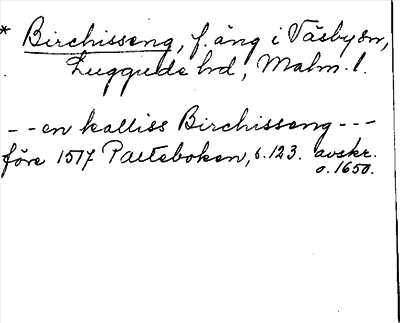 * Birchisseng, f. äng i Väsby sn,
Luggude hd, Malm. l.
- - en kalliss Birchisseng - - -
före 1517 Palteboken, s. 123. avskr.
o. 1650.